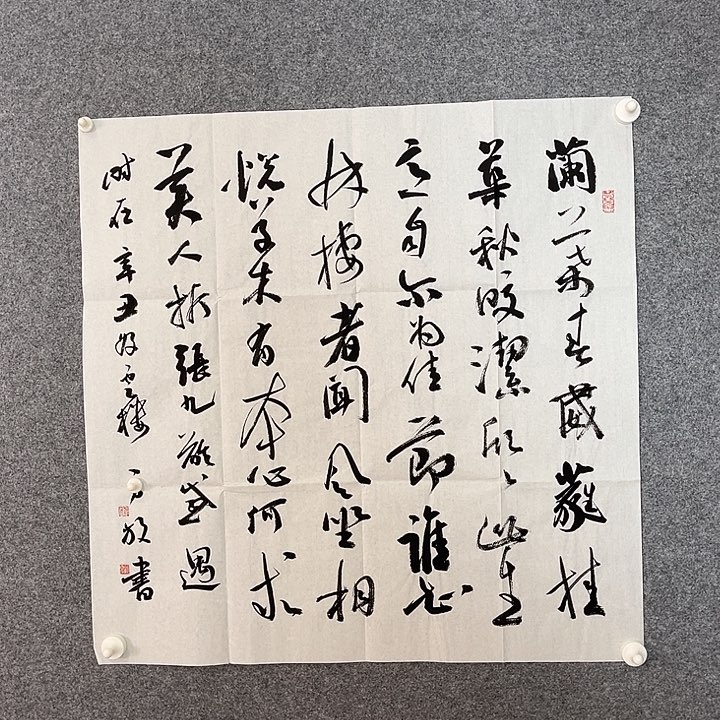 蘭葉春葳蕤桂
華秋皎潔欣々此生
意自尔为佳節誰知
林棲者聞風坐相
悅草木有本心何求
美人折張九齡感遇
时在辛丑 雲樓 書